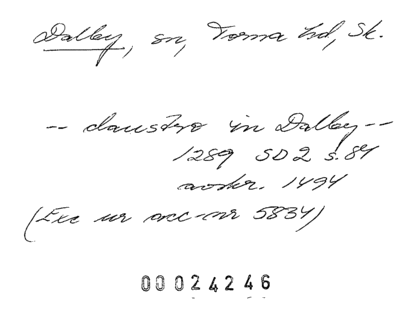 Dalby, sn, Torna hd, Sk.
-- claustro in Dalby --
1289 SD 2 s. 84
avskr. 1494
(Exc ur acc-nr 5834)
00024246